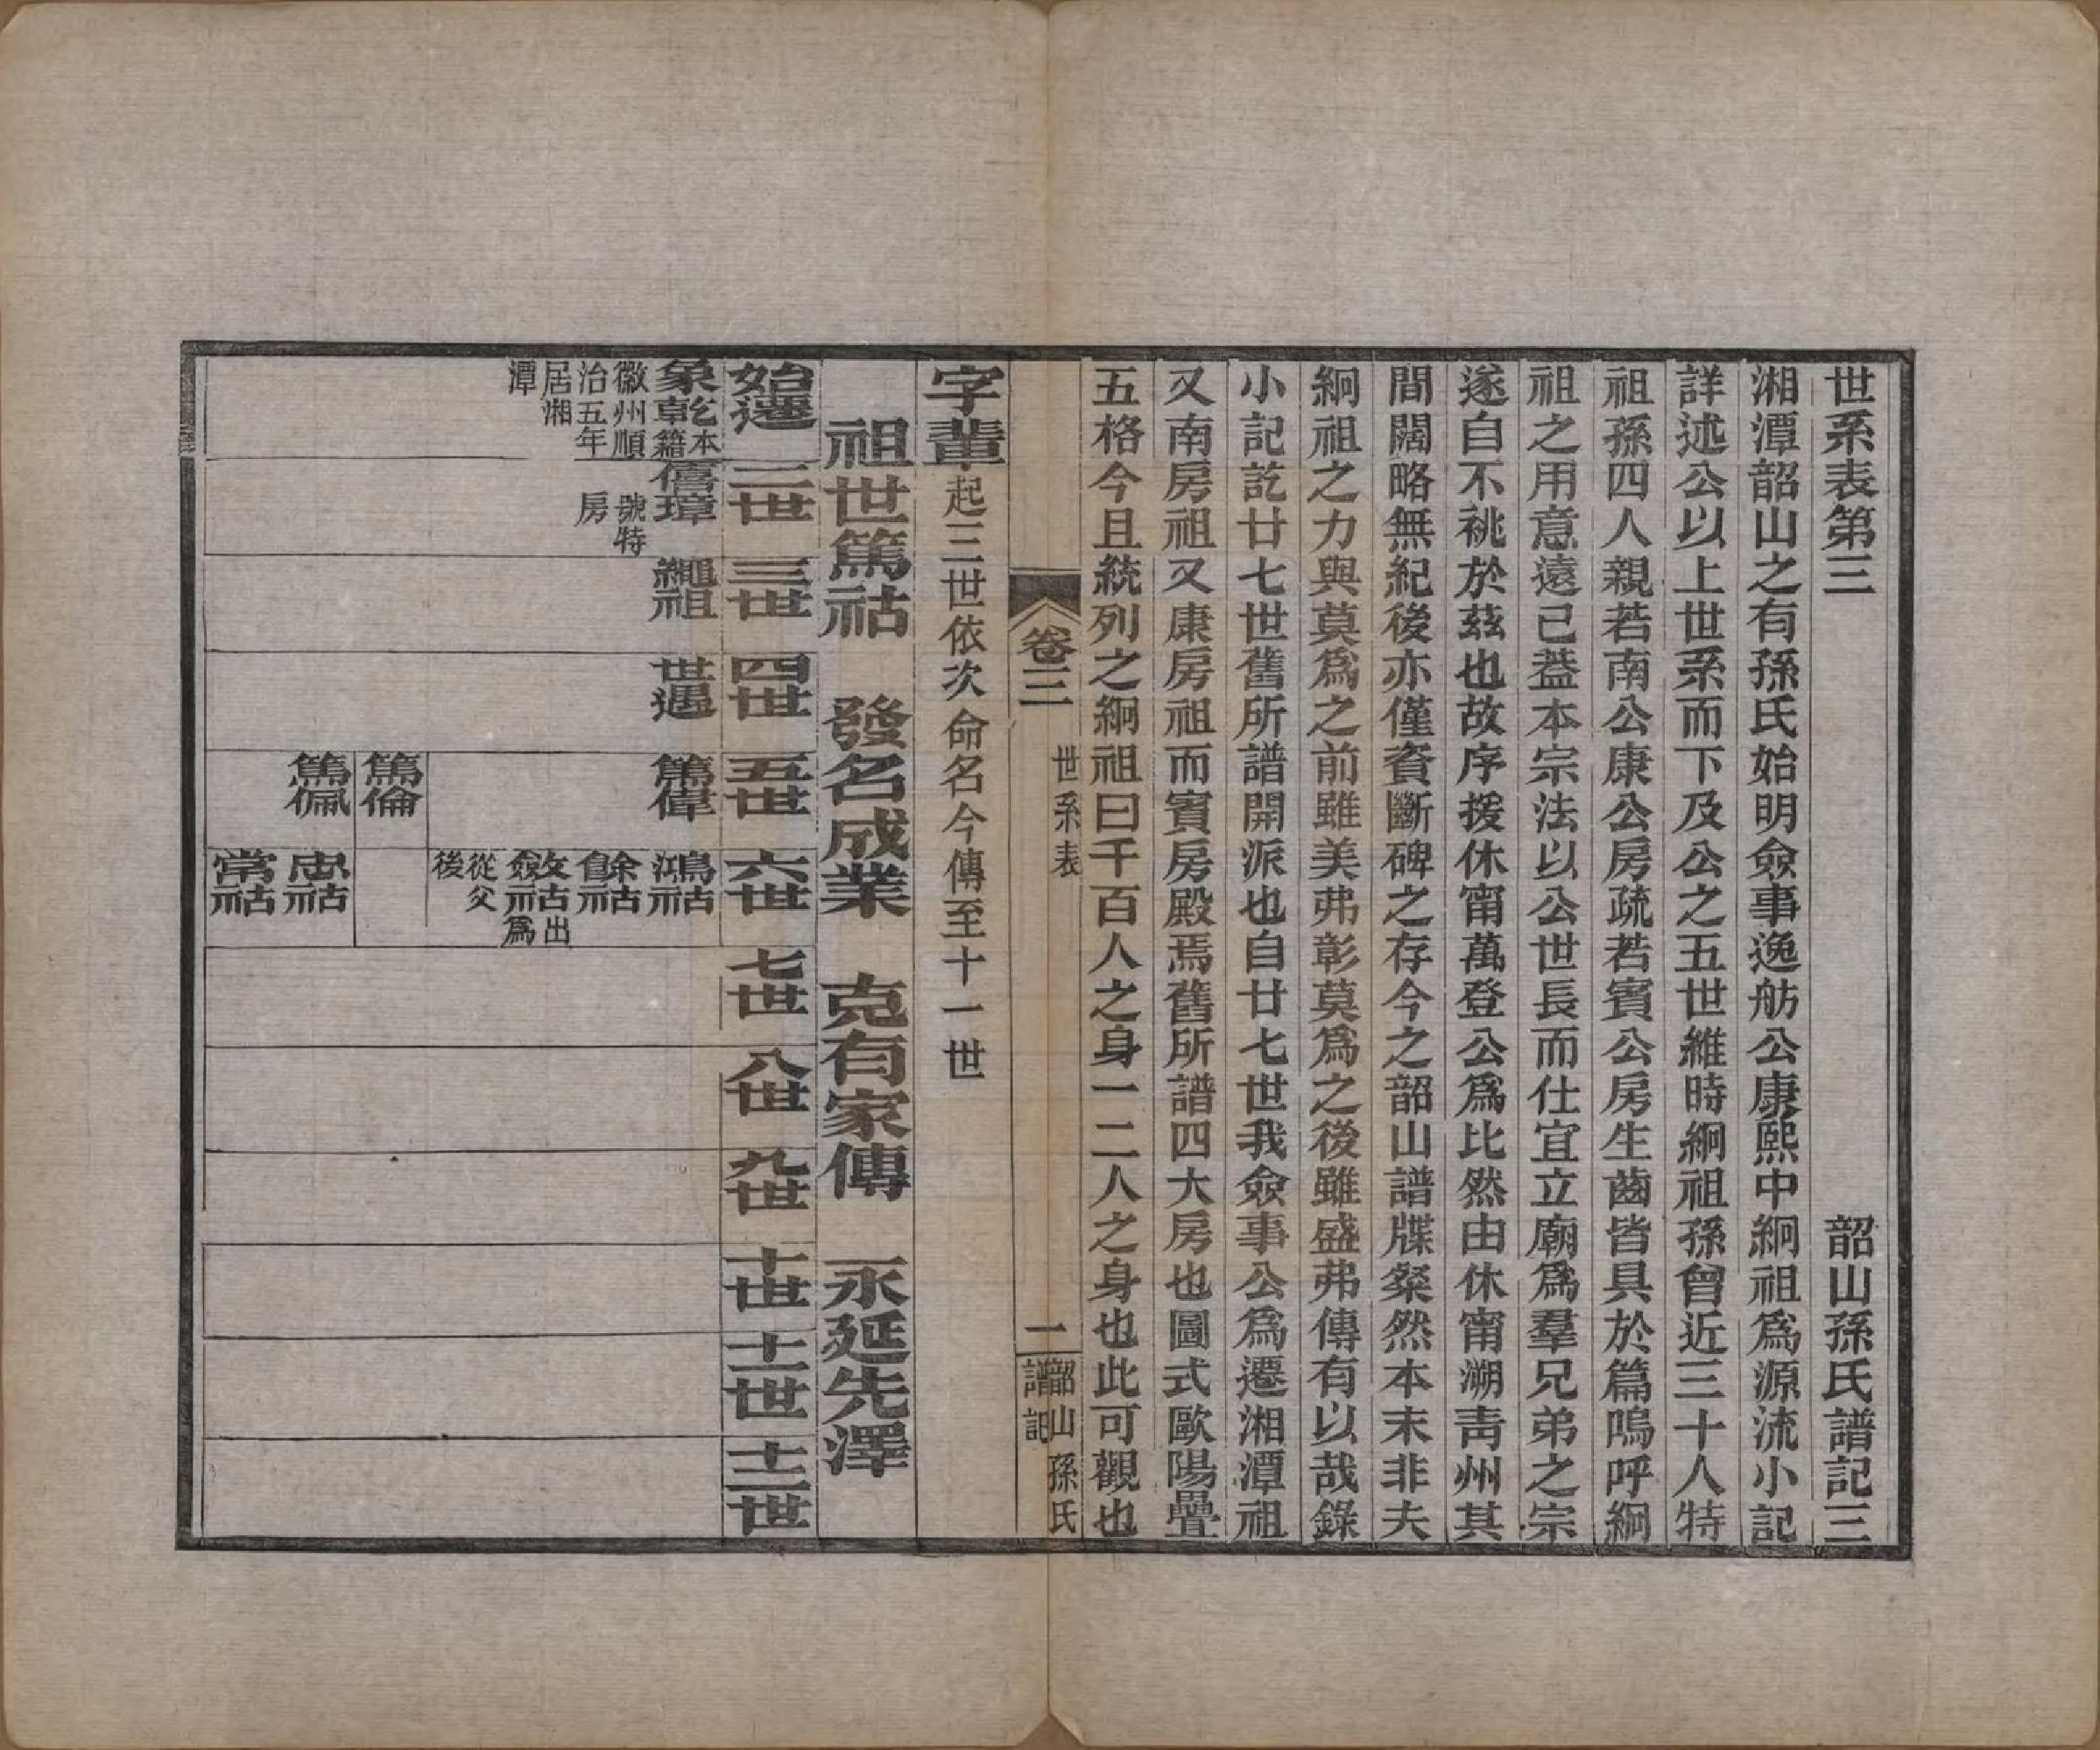 世系表第三　韶山孫氏譜記三
湘潭韶山之有孫氏始明僉事逸舫公康熙中絅祖爲源流小記
詳述公以上世系而下及公之五世維時絅祖孫曾近三十人特
祖孫四人親若南公康公房疏若賓公房生齒皆具於篇嗚呼絅
祖之用意遠已葢本宗法以公世長而仕宜立廟爲羣兄弟之宗
遂自不祧於茲也故序援休甯萬登公爲比然由休甯溯靑州其
間闊略無紀後亦僅資斷碑之存今之韶山譜牒粲然本末非夫
絅祖之力與莫爲之前雖美弗彰莫爲之後雖盛弗傳有以哉錄
小記訖廿七世舊所譜開派也自廿七世我僉事公爲遷湘潭祖
又南房祖又康房祖而賓房殿焉舊所譜四大房也圖式歐陽疊
五格今且統列之絅祖曰千百人之身一二人之身也此可觀也
卷三　世系表　一　韶山孫氏譜記
字輩起三世依次命名今傳至十一世
祖世篤祜　發名成業　克有家傳　永延先澤
始遷　二世　三世　四世　五世　六世　七世　八世　九世　十世　十一世　十二世
象乾本籍徽州順治五年居湘潭
僖璋號特房
繩祖
世遇
篤偉
鴻祜
餘祜
飠祜
攸祜出
僉祜爲從父後
篤倫
篤佩
忠祜
常祜